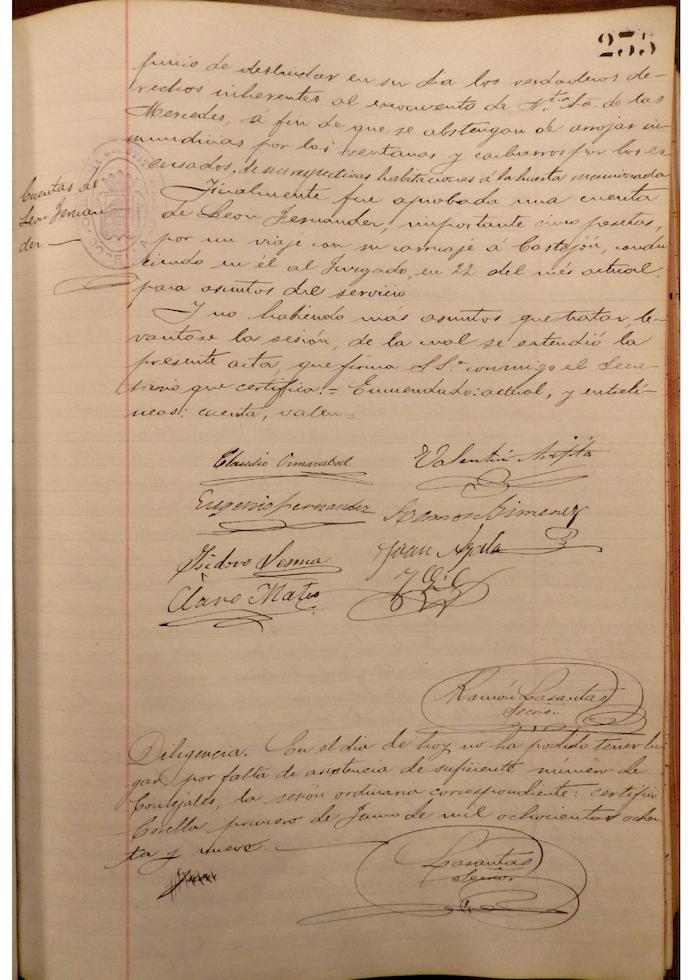 235
juicio de deslindar en su dia los verdaderos de-
rechos inherentes al exconvento de N.tra Sa. de las
Mercedes, á fin de que se abstengan de arrojar in-
mundicias por las ventanas y cacharros por los ex-
cusados, de sus respectivas habitaciones á la huerta mencionada
Cuentas de
Leon Fernan
der
Finalmente fue aprobada una cuenta
de Leon Fernander, importante cinco pesetas,
por un viaje con su carruaje á Castejón, condu
ciendo en él al Juzgado, en 22 del més actual,
para asuntos del servicio
Y no habiendo más asuntos que tratar, le-
vantóse la sesión, de la cual se extendió la
presente acta, que firma S.Sa. conmigo el Secre-
tario que certifica.= Enmendado: actual, y entreli-
neas: cuenta, valen=
Claudio Valentin
Eugenio Fernandez Ramon Gimenez
Isidoro Juan Ayala
Claro Mateo
Ramón Lasantas
Secrio.
Diligencia. En el dia de hoy no ha podido tener lu-
gar, por falta de asistencia de suficiente número de
Concejales, la sesión ordinaria correspondiente: certifico
Corella primero de Junio de mil ochocientos ochen
ta y nueve.
Lasantas
Secrio.